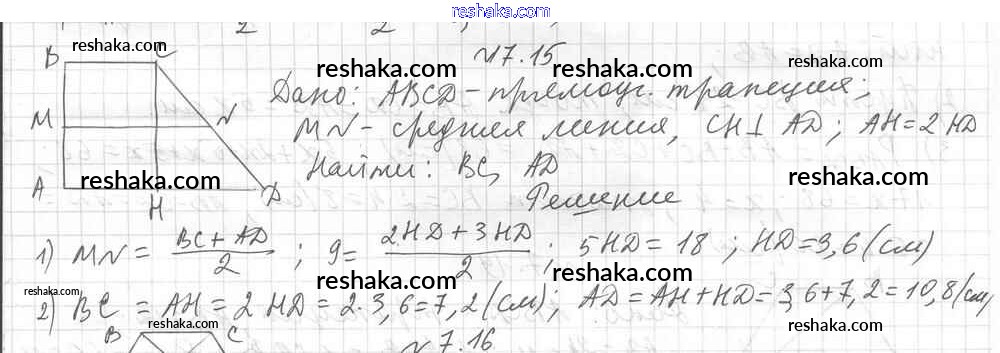 reshaka.com
2 2
№7.15
B C
Дано: ABCD - прямоуг. трапеция;
M N
MN - средняя линия, CH⊥AD; AH=2HD
Найти: BC, AD
A H D
Решение
1) MN = (BC+AD)/2; 9 = (2HD+3HD)/2; 5HD=18; HD=3,6(см)
2) BC = AH = 2HD = 2·3,6=7,2(см); AD=AH+HD=3,6+7,2=10,8(см)
B C
№7.16
reshaka.com
reshaka.com
reshaka.com
reshaka.com
reshaka.com
reshaka.com
reshaka.com
reshaka.com
reshaka.com
reshaka.com